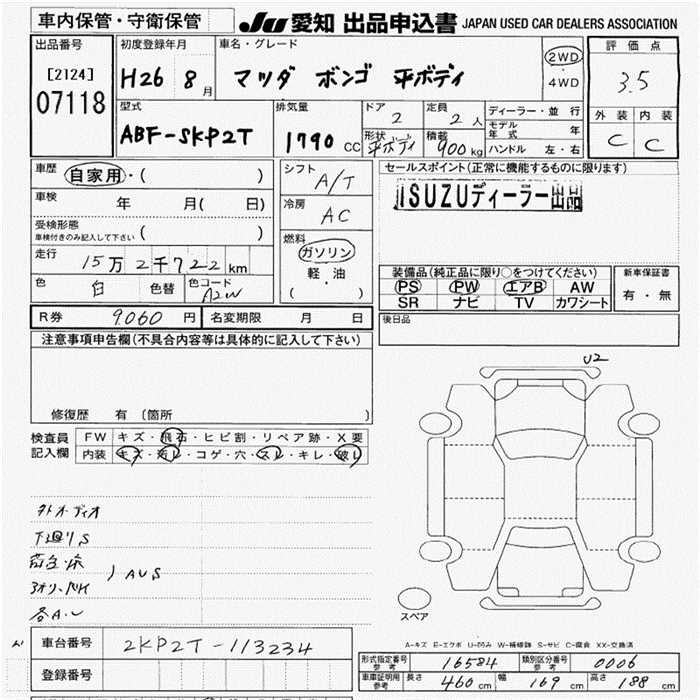 車内保管・守衛保管
JU 愛知 出品申込書 JAPAN USED CAR DEALERS ASSOCIATION
出品番号 [2124] 07118
初度登録年月 H26 8月
車名・グレード マツダ ボンゴ 平ボディ
2WD・4WD
評価点 3.5
外装 内装
C C
型式 ABF-SKP2T
排気量 1790 CC
ドア 2
定員 2人
形状 平ボディ
積載 900kg
ディーラー・並行
モデル年式 年
ハンドル 左・右
車歴 自家用・( )
車検 年 月( 日)
受検形態 ( )
車検付きのみ記入して下さい
走行 15万2千722km
色 白 色替 色コード A2W
シフト A/T
冷房 AC
燃料 ガソリン
軽・油
( )
セールスポイント(正常に機能するものに限ります)
ISUZUディーラー出品
装備品(純正品に限り○をつけてください)
PS PW エアB AW
SR ナビ TV カワシート
新車保証書
有・無
R券 9060円 名変期限 月 日
後日品
注意事項申告欄(不具合内容等は具体的に記入して下さい)
修復歴 有〔箇所 〕
検査員記入欄
FW キズ・飛石・ヒビ割・リペア跡・X要
内装 キズ・汚レ・コゲ・穴・スレ・キレ・破レ
U2
下廻りS
AUS
スペア
A-キズ E-エクボ U-凹み W-補修跡 S-サビ C-腐食 XX-交換済
車台番号 SKP2T-113234
登録番号
形式指定番号 参考 16584 類別区分番号 参考 0006
車庫証明用 参考 長さ 460cm 幅 169cm 高さ 188cm